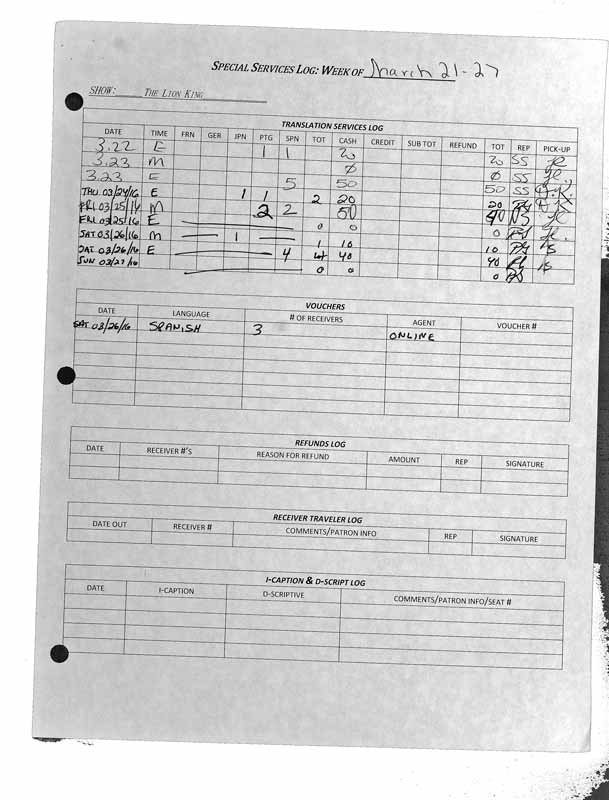 SPECIAL SERVICES LOG: WEEK OF March 21-27
SHOW: THE LION KING
TRANSLATION SERVICES LOG
DATE TIME FRN GER JPN PTG SPN TOT CASH CREDIT SUB TOT REFUND TOT REP PICK-UP
3.22 E 1 1 20 20 SS
3.23 M 0 0 SS
3.23 E 5 50 50 SS
THU 03/24/16 E 1 1 2 20 20
FRI 03/25/16 M 2 2 50 40
FRI 03/25/16 E 0 0 0
SAT 03/26/16 M 1 1 10 10
SAT 03/26/16 E 4 4 40 40
SUN 03/27/16 0 0 0
VOUCHERS
DATE LANGUAGE # OF RECEIVERS AGENT VOUCHER #
SAT 03/26/16 SPANISH 3 ONLINE
REFUNDS LOG
DATE RECEIVER #'S REASON FOR REFUND AMOUNT REP SIGNATURE
RECEIVER TRAVELER LOG
DATE OUT RECEIVER # COMMENTS/PATRON INFO REP SIGNATURE
I-CAPTION & D-SCRIPT LOG
DATE I-CAPTION D-SCRIPTIVE COMMENTS/PATRON INFO/SEAT #